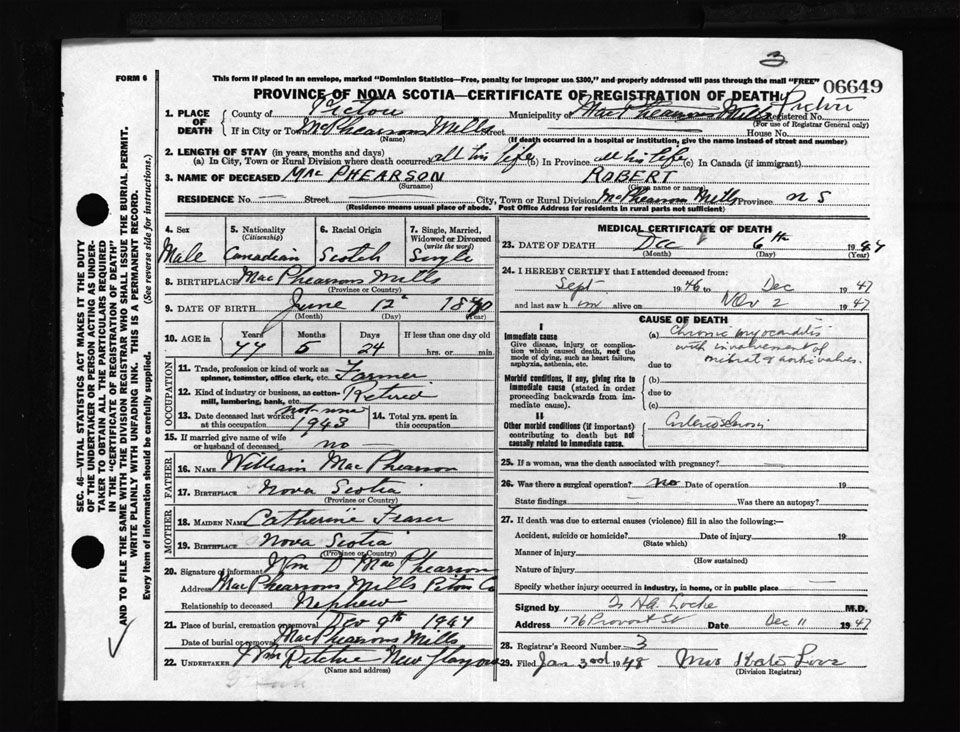 3
FORM 6
This form if placed in an envelope, marked "Dominion Statistics—Free, penalty for improper use $300," and properly addressed will pass through the mail "FREE"
06649
PROVINCE OF NOVA SCOTIA—CERTIFICATE OF REGISTRATION OF DEATH
1. PLACE OF DEATH
County of Pictou Municipality of MacPhearsons Mills Pictou Registered No.
(For use of Registrar General only)
If in City or Town McPhearsons Mills Street House No.
(Name) (If death occurred in a hospital or institution, give the name instead of street and number)
2. LENGTH OF STAY (in years, months and days)
(a) In City, Town or Rural Division where death occurred all his life (b) In Province all his life (c) In Canada (if immigrant)
3. NAME OF DECEASED MAC PHEARSON ROBERT
(Surname) (Given name or names)
RESIDENCE No. — Street City, Town or Rural Division McPhearsons Mills Province N S
(Residence means usual place of abode. Post Office Address for residents in rural parts not sufficient)
4. Sex
Male
5. Nationality (Citizenship)
Canadian
6. Racial Origin
Scotch
7. Single, Married, Widowed or Divorced (write the word)
Single
8. BIRTHPLACE MacPhearsons Mills
(Province or Country)
9. DATE OF BIRTH June 12 18
(Month) (Day) (Year)
10. AGE in
Years Months Days If less than one day old
77 5 24 hrs. or min.
OCCUPATION
11. Trade, profession or kind of work as spinner, teamster, office clerk, etc. Farmer
12. Kind of industry or business, as cotton-mill, lumbering, bank, etc. Retired
13. Date deceased last worked at this occupation 1943
14. Total yrs. spent in this occupation
15. If married give name of wife or husband of deceased no
FATHER
16. NAME William MacPhearson
17. BIRTHPLACE Nova Scotia
(Province or Country)
MOTHER
18. MAIDEN NAME Catherine Fraser
19. BIRTHPLACE Nova Scotia
(Province or Country)
20. Signature of informant Wm D MacPhearson
Address MacPhearsons Mills Pictou Co
Relationship to deceased Nephew
21. Place of burial, cremation or removal Dec 9th 1947
Date of burial or removal MacPhearsons Mills
22. UNDERTAKER Ritchie New Glasgow
(Name and address)
MEDICAL CERTIFICATE OF DEATH
23. DATE OF DEATH Dec 6th 1947
(Month) (Day) (Year)
24. I HEREBY CERTIFY that I attended deceased from:
Sept 1946 to Dec 1947
and last saw him alive on Nov 2 1947
CAUSE OF DEATH
I
Immediate cause
Give disease, injury or complication which caused death, not the mode of dying, such as heart failure, asphyxia, asthenia, etc.
(a) Chronic myocarditis
with involvement of
mitral & aortic valves.
due to
Morbid conditions, if any, giving rise to immediate cause (stated in order proceeding backwards from immediate cause).
(b)
due to
(c)
II
Other morbid conditions (if important) contributing to death but not causally related to immediate cause.
Arteriosclerosis
25. If a woman, was the death associated with pregnancy?
26. Was there a surgical operation? no Date of operation 19
State findings — Was there an autopsy?
27. If death was due to external causes (violence) fill in also the following:—
Accident, suicide or homicide? Date of injury 19
(State which)
Manner of injury
(How sustained)
Nature of injury
Specify whether injury occurred in industry, in home, or in public place —
Signed by Locke M.D.
Address 176 Provost St Date Dec 11 1947
28. Registrar's Record Number 3
29. Filed Jan 3rd 1948 Mrs
(Division Registrar)
SEC. 46—VITAL STATISTICS ACT MAKES IT THE DUTY
OF THE UNDERTAKER OR PERSON ACTING AS UNDER-
TAKER TO OBTAIN ALL THE PARTICULARS REQUIRED
IN THE "CERTIFICATE OF REGISTRATION OF DEATH"
AND TO FILE THE SAME WITH THE DIVISION REGISTRAR WHO SHALL ISSUE THE BURIAL PERMIT.
WRITE PLAINLY WITH UNFADING INK. THIS IS A PERMANENT RECORD.
Every item of information should be carefully supplied. (See reverse side for instructions.)